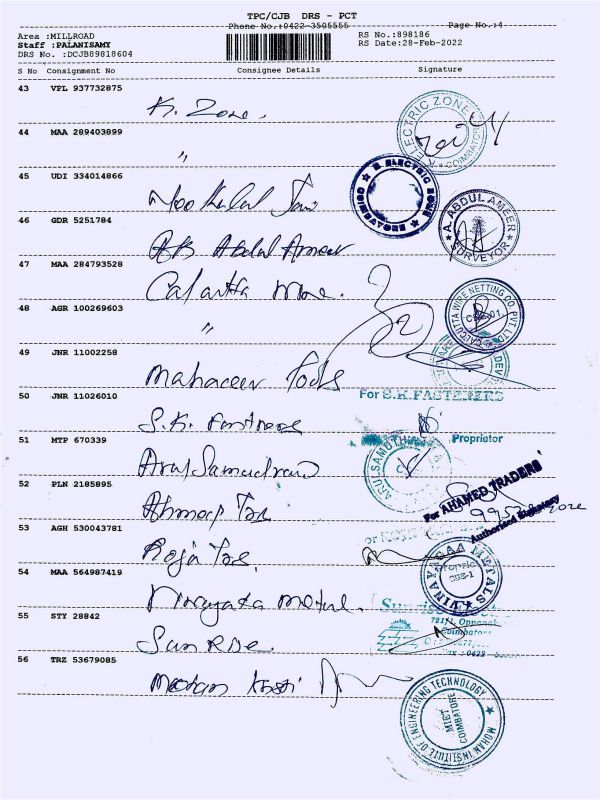 TPC/CJB DRS - PCT
Phone No.:0422-3505555 Page No.:4
Area :MILLROAD RS No.:898186
Staff :PALANISAMY RS Date:28-Feb-2022
DRS No. :DCJB89818604
S No Consignment No Consignee Details Signature
43 VPL 937732875
K. Zone.
K ELECTRIC ZONE COIMBATORE
44 MAA 289403899
"
45 UDI 334014866
K ELECTRIC ZONE
46 GDR 5251784
AB Abdul Ameer
A. ABDUL AMEER SURVEYOR
47 MAA 284793528
Calcutta Wire.
48 AGR 100269603
"
CALCUTTA WIRE NETTING CO. PVT. LTD.
49 JNR 11002258
Mahaveer Tools
50 JNR 11026010
For S.K.FASTENERS
S.K. Fastners
Proprietor
51 MTP 670339
Arul Samudram
52 PLN 2185895
Ahmed Tra
For AHAMED TRADERS
Authorised Signatory
53 AGH 530043781
Raja Tra.
54 MAA 564987419
Vinayaka Metal.
VINAYAGAA METALS CBE-1
55 STY 28842
Sunrise
721/1, Oppanak
Coimbatore
Sun Rise.
56 TRZ 53679085
Mohan Insti
MOHAN INSTITUTE OF ENGINEERING TECHNOLOGY
MIET
COIMBATORE